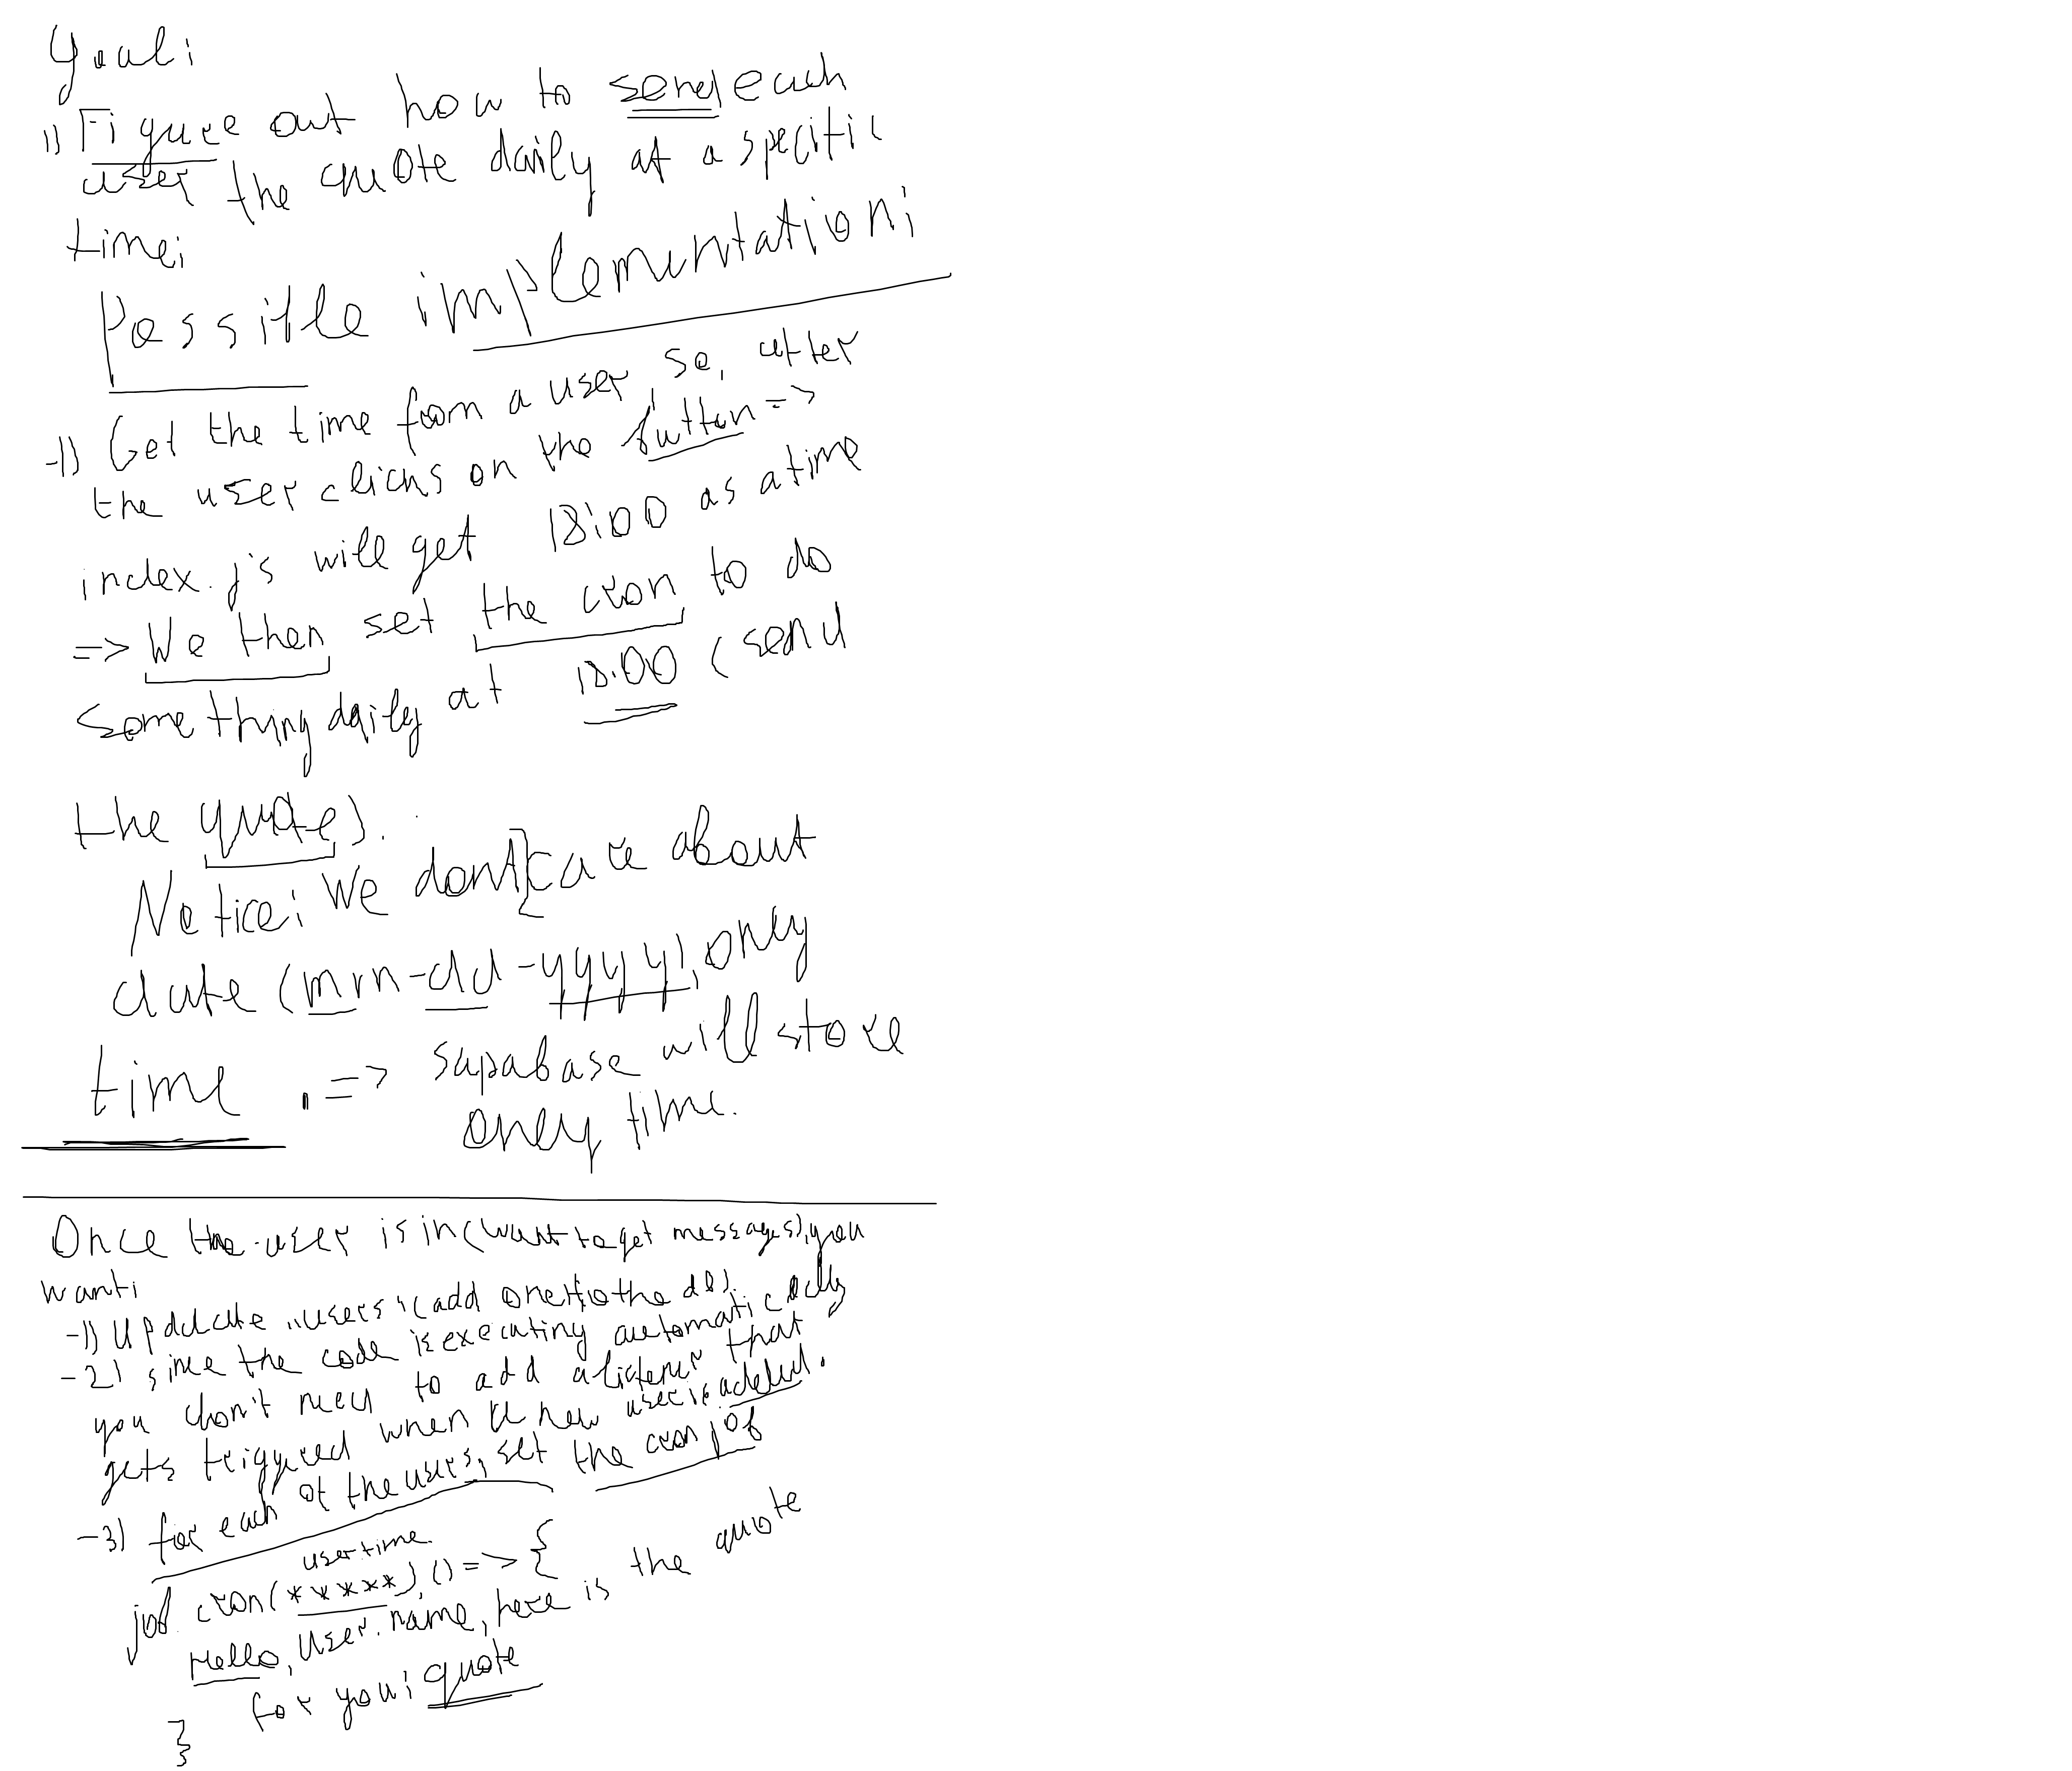 Goal:
1) Figure out how to send each
user the quote daily at a specific
time:
Possible implementation:
-1) Get the time from a user, so, after
the user clicks on the button =>
index.js will get 18:00 as a time
=> We then set the cron to do
something daily at 18:00 (send
the quote).
Notice: We dont care about
date (mm-dd-yyyy), only
time. => supabase will store
only time.
Once the user is in (want to get messages), you
want:
-1) Update "users" (add one to the db).
-2) since the code is executing automatically
you don't need to add a listener that
gets triggered when a new user is added.
-3) for each of the users, set the cron job
user.time.
job cron(* * * * *), () => {
Hello, User.name, here is the quote
for you: quote
}